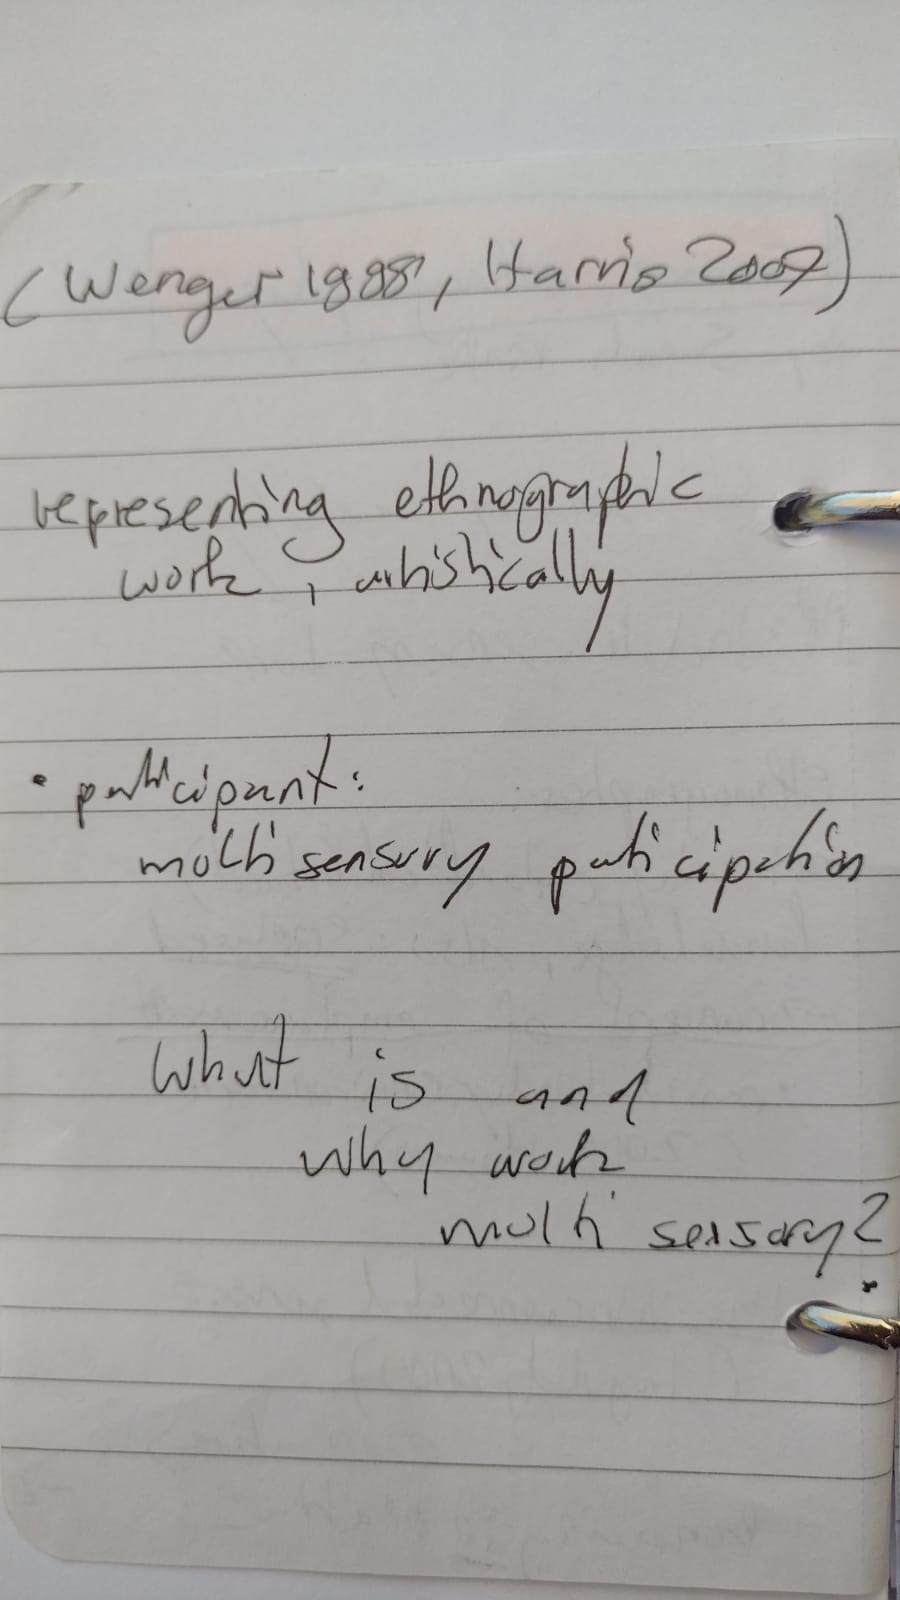 (Wenger 1998, Harris 2007)
representing ethnographic
work, artistically
• participant:
multi sensory participation
What is and
why work
multi sensory?